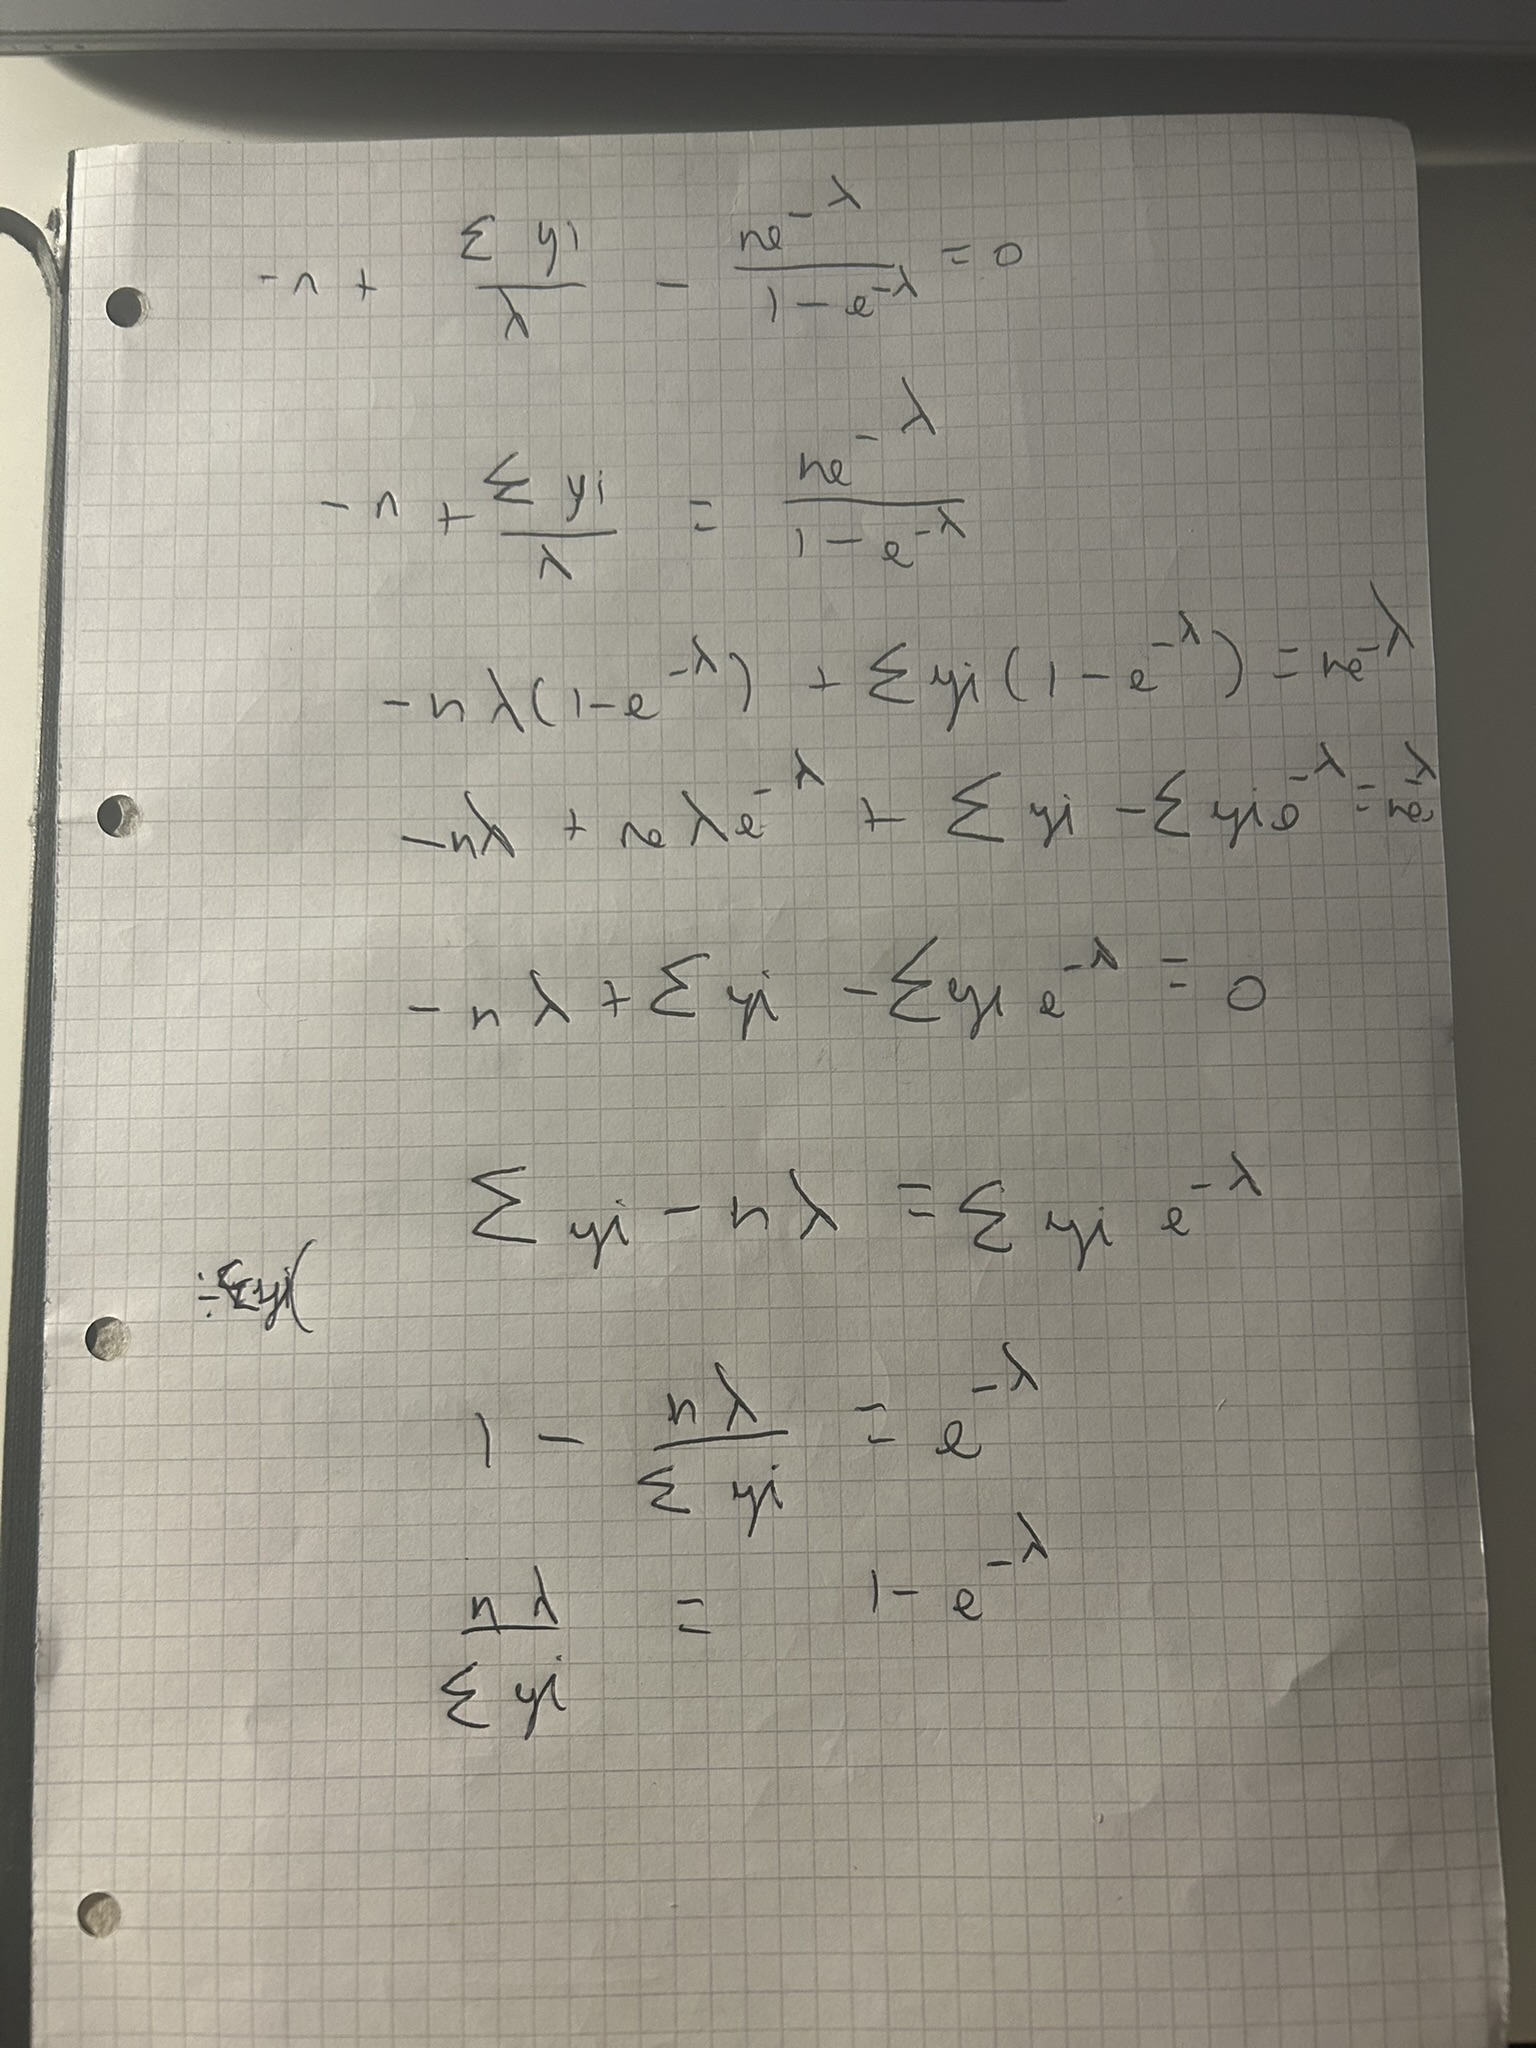 -n + Σ yi / λ - ne^-λ / 1 - e^-λ = 0
-n + Σ yi / λ = ne^-λ / 1 - e^-λ
-nλ(1-e^-λ) + Σ yi (1 - e^-λ) = ne^-λ
-nλ + ne λe^-λ + Σ yi - Σ yi e^-λ = ne^-λ
-nλ + Σ yi - Σ yi e^-λ = 0
Σ yi - nλ = Σ yi e^-λ
÷ Σyi)
1 - nλ / Σ yi = e^-λ
nλ / Σ yi = 1 - e^-λ